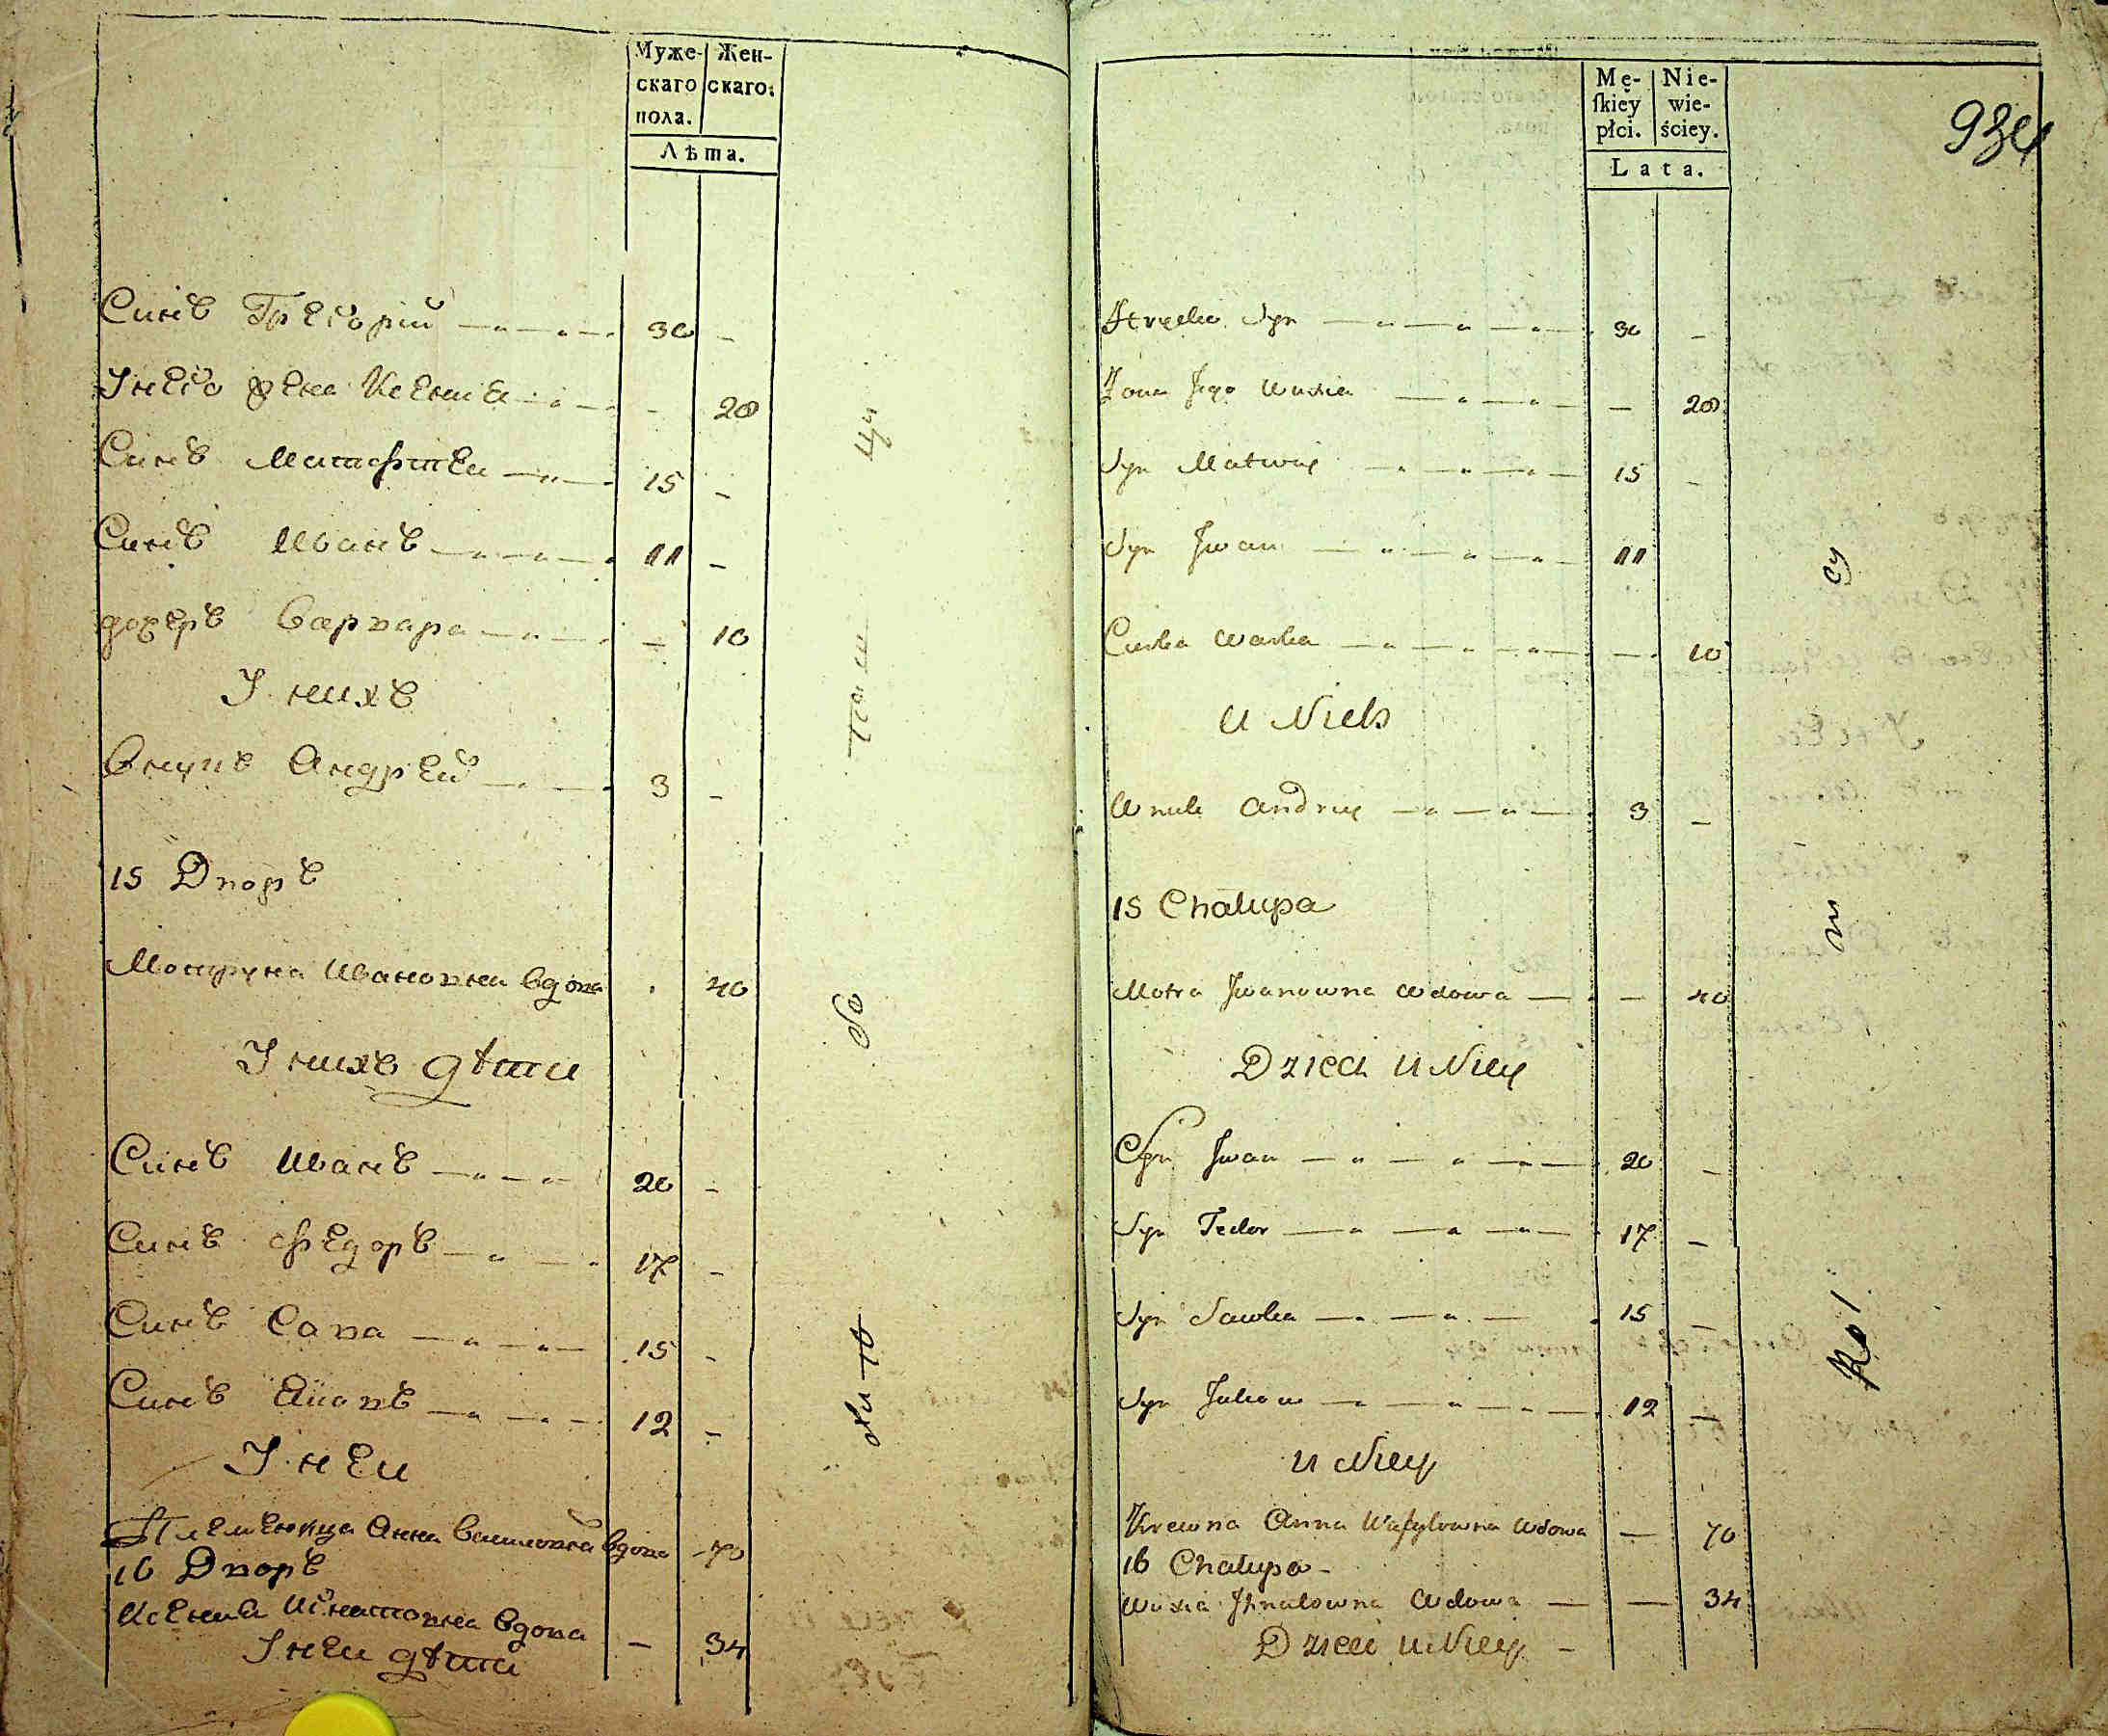 Муже-
скаго
пола.
Жен-
скаго.
Лѣта.
Синъ Григорій 30 -
У нЕго жЕна КсЕния - 28
Синъ МатфтЕи 15 -
Синъ Иванъ 11 -
дочЕръ Варвара - 10
У нихъ
Внукъ АндрЕй 3 -
15 Дворъ
Мотруна Ивановна вдова 40
У нихъ дѣти
Синъ Иванъ 20 -
Синъ ФЕдоръ 17 -
Синъ Сава 15 -
Синъ Яковъ 12 -
У нЕи
ПлЕмЕница Анна вдова 70
16 Дворъ
КсЕния Игнатовна вдова - 34
У нЕи дѣти
Mę-
ſkiey
płci.
Nie-
wie-
ściey.
Lata.
934
Hryćko Syn 30 -
Żona Jego Wuxia - 28
Syn Matwiy 15 -
Syn Jwan 11
Curka Warka - 10
U Nich
Wnuk Andruy 3 -
15 Chałupa
Motra Jwanowna Wdowa - 40
Dzieci U Niey
Syn Jwan 20 -
Syn Fedor 17 -
Syn Sawka 15 -
Syn Jakow 12 -
U Niey
Krewna Anna Wasylowna Wdowa - 70
16 Chałupa
Wuxia Jhnatowna Wdowa - 34
Dzieci U Niey